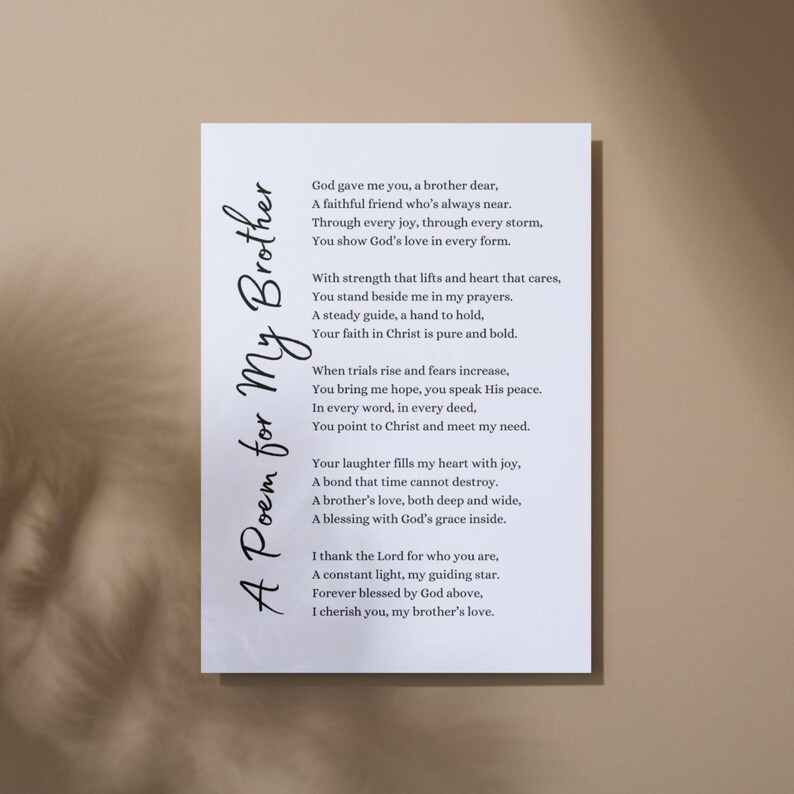 A Poem for My Brother
God gave me you, a brother dear,
A faithful friend who’s always near.
Through every joy, through every storm,
You show God’s love in every form.
With strength that lifts and heart that cares,
You stand beside me in my prayers.
A steady guide, a hand to hold,
Your faith in Christ is pure and bold.
When trials rise and fears increase,
You bring me hope, you speak His peace.
In every word, in every deed,
You point to Christ and meet my need.
Your laughter fills my heart with joy,
A bond that time cannot destroy.
A brother’s love, both deep and wide,
A blessing with God’s grace inside.
I thank the Lord for who you are,
A constant light, my guiding star.
Forever blessed by God above,
I cherish you, my brother’s love.